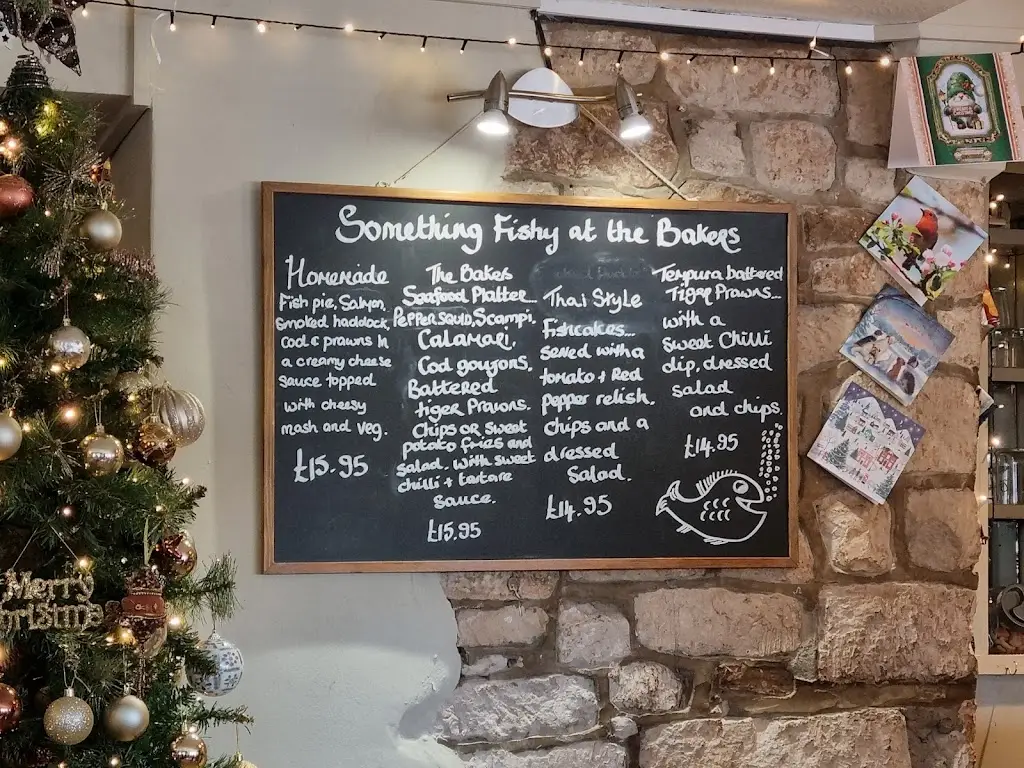 Something Fishy at the Bakers
Homemade
Fish pie, Salmon,
Smoked haddock,
Cod & prawns in
a creamy cheese
Sauce topped
with cheesy
mash and veg.
£15.95
The Bakers
Seafood Platter...
Pepper Squid, Scampi,
Calamari,
Cod goujons,
Battered
tiger Prawns.
Chips or sweet
potato fries and
salad. With sweet
chilli + tartare
sauce.
£15.95
Thai Style
Fishcakes...
served with a
tomato + Red
pepper relish.
chips and a
dressed
Salad.
£14.95
Tempura battered
Tiger Prawns...
with a
Sweet Chilli
dip, dressed
salad
and chips.
£14.95
Merry
Christmas